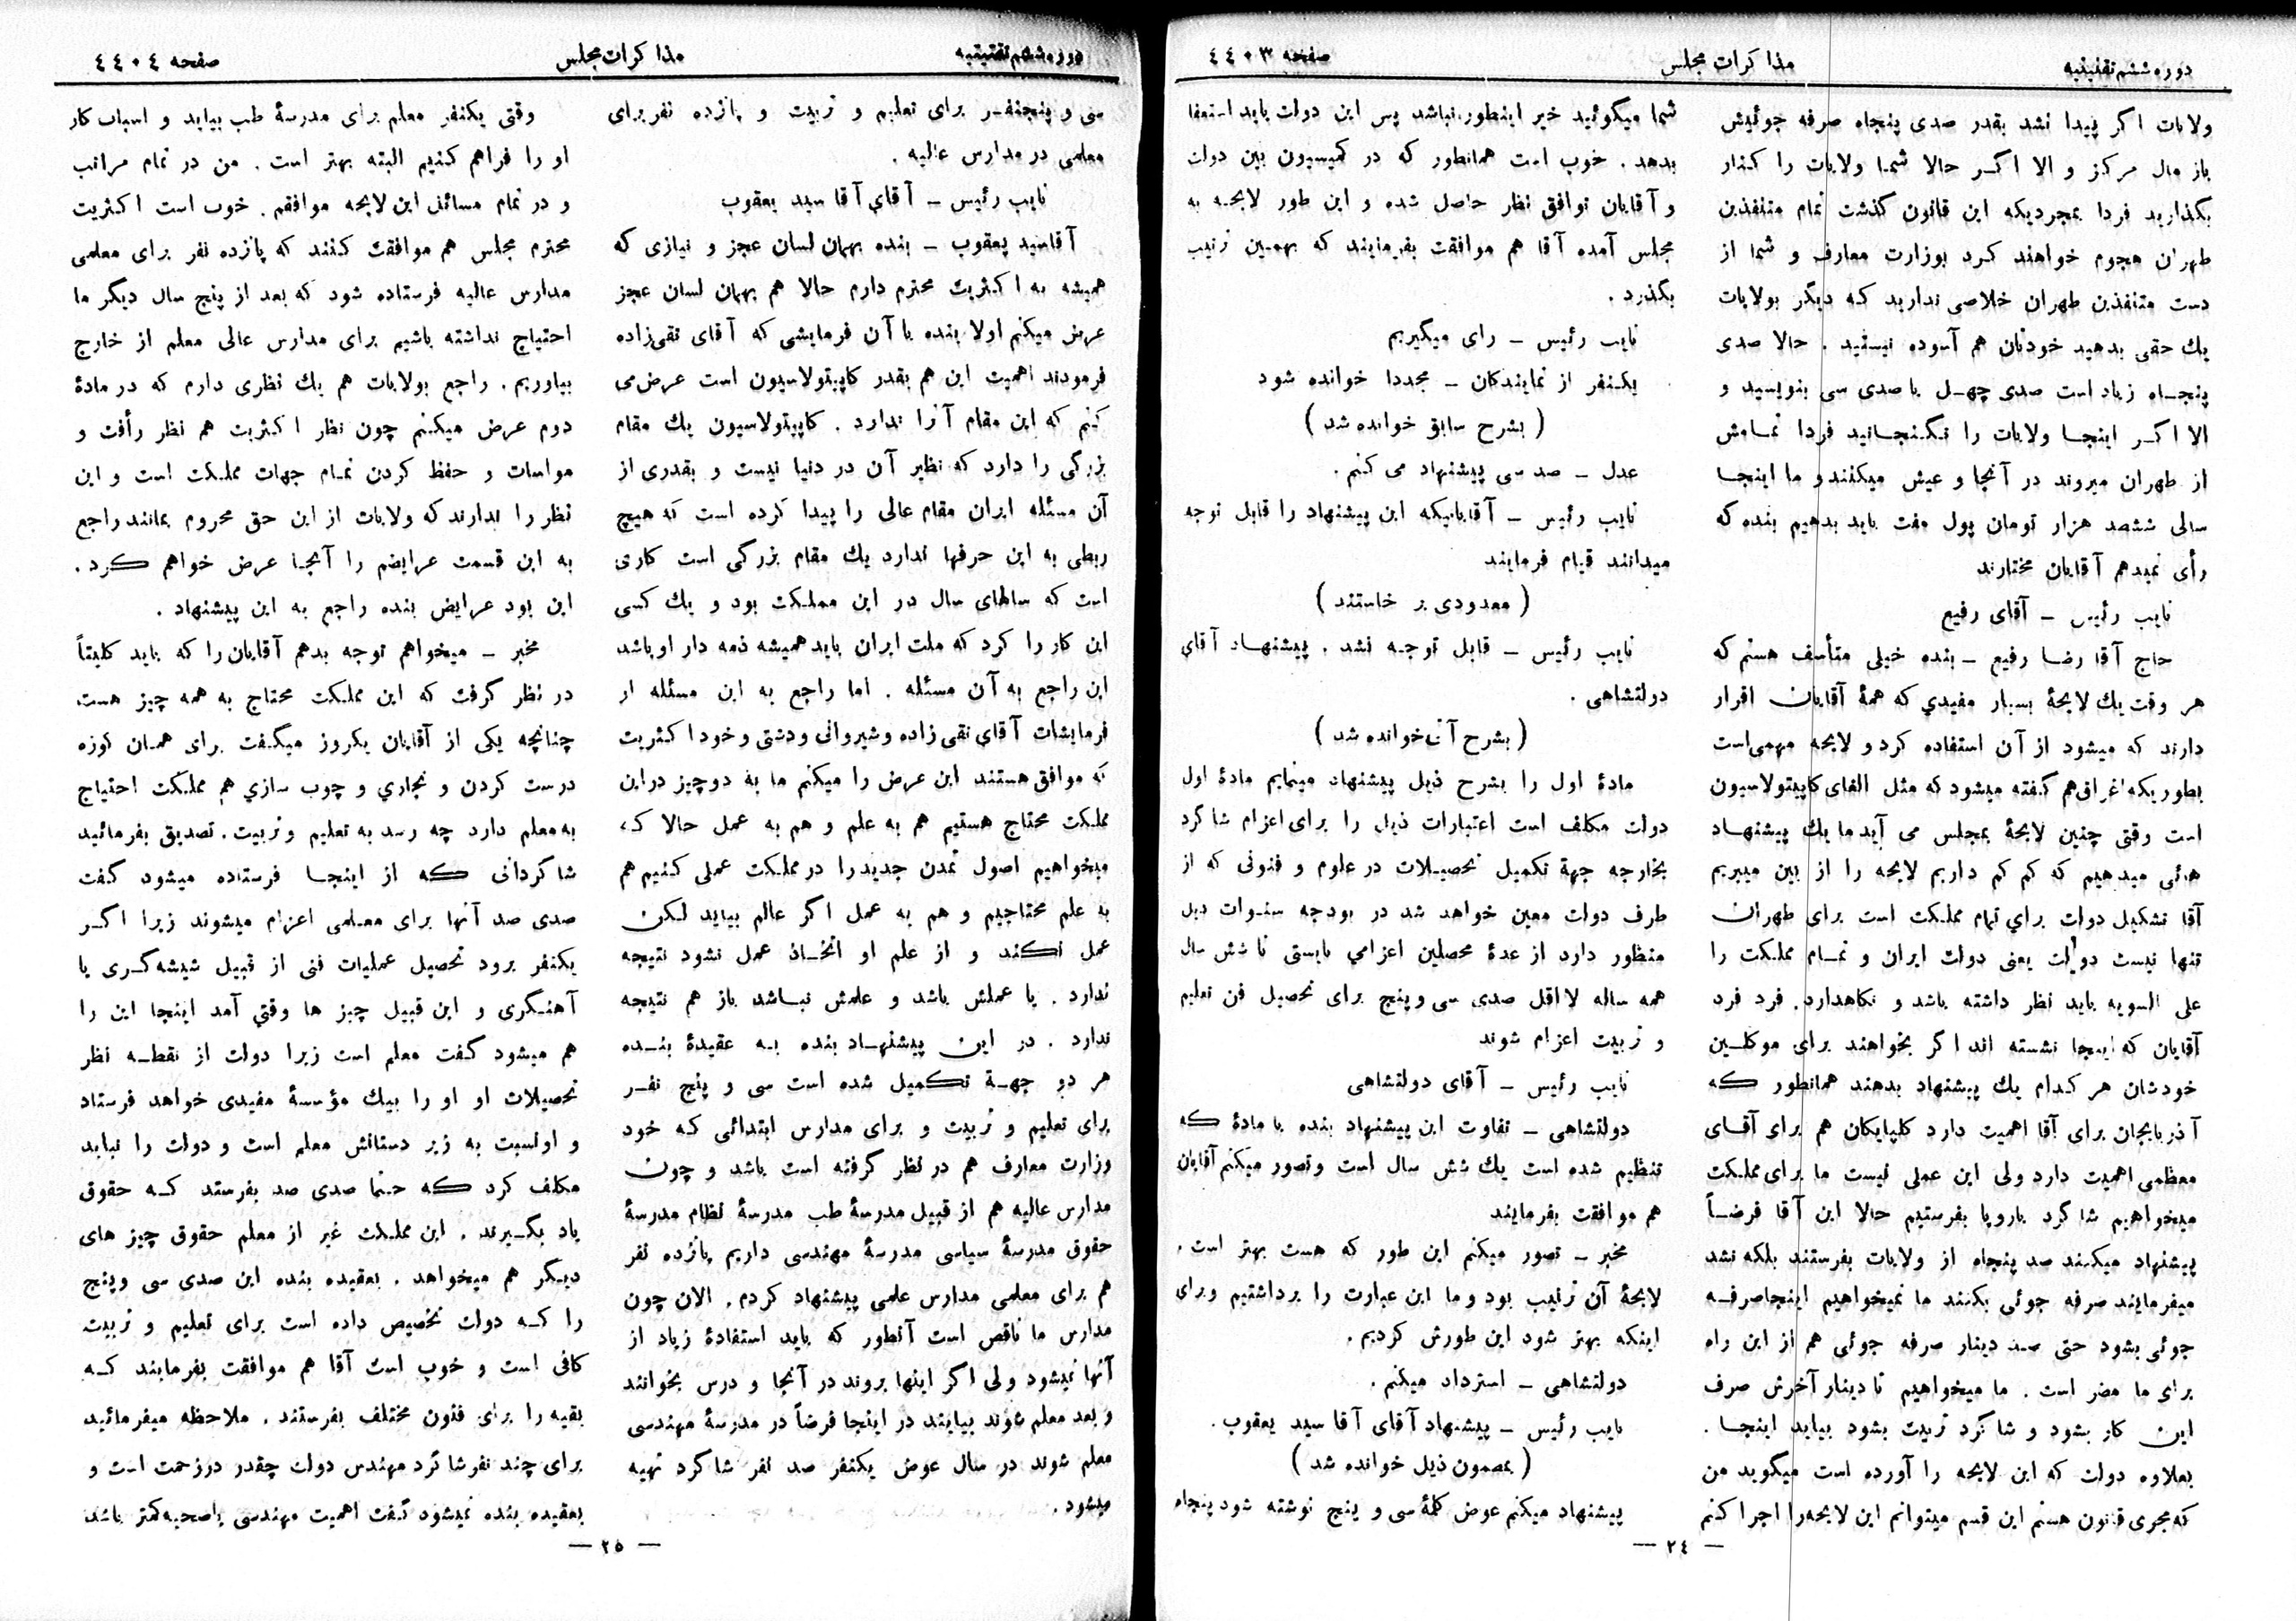 دوره ششم تقنینیه
مذاکرات مجلس
صفحه ٤٤٠٣
ولایات اگر پیدا نشد بقدر صدی پنجاه صرفه جوئیش
باز مال مرکز و الا اگر حالا شما ولایات را کنار
بگذارید فردا بمجردیکه این قانون گذشت تمام متنفذین
طهران هجوم خواهند کرد بوزارت معارف و شما از
دست متنفذین طهران خلاصی ندارید که دیگر بولایات
یك حقی بدهید خودتان هم آسوده نیستید . حالا صدی
پنجاه زیاد است صدی چهل یا صدی سی بنویسید و
الا اگر اینجا ولایات را نگنجانید فردا تمامش
از طهران میروند در آنجا و عیش میکنند و ما اینجا
سالی ششصد هزار تومان پول مفت باید بدهیم بنده که
رأی نمیدهم آقایان مختارند
نایب رئیس – آقای رفیع
حاج آقا رضا رفیع – بنده خیلی متأسف هستم که
هر وقت یك لایحهٔ بسیار مفیدي که همهٔ آقایان اقرار
دارند که میشود از آن استفاده کرد و لایحه مهمی است
بطوریکه اغراق هم گفته میشود که مثل الغای کاپیتولاسیون
است وقتی چنین لایحهٔ بمجلس می آید ما یك پیشنهاد
هائی میدهیم که کم کم داریم لایحه را از بین میبریم
آقا تشکیل دولت براي تمام مملکت است برای طهران
تنها نیست دولت یعنی دولت ایران و تمام مملکت را
علی السویه باید نظر داشته باشد و نگاهدارد. فرد فرد
آقایان که اینجا نشسته اند اگر بخواهند برای موکلین
خودشان هر کدام یك پیشنهاد بدهند همانطور که
آذربایجان برای آقا اهمیت دارد گلپایگان هم برای آقای
معظمی اهمیت دارد ولی این عملی نیست ما برای مملکت
میخواهیم شاگرد باروپا بفرستیم حالا این آقا فرضاً
پیشنهاد میکنند صد پنجاه از ولایات بفرستند بلکه نشد
میفرمایند صرفه جوئی بکنند ما نمیخواهیم اینجا صرفه
جوئی بشود حتی صد دینار صرفه جوئی هم از این راه
برای ما مضر است . ما میخواهیم تا دینار آخرش صرف
این کار بشود و شاگرد تربیت بشود بیاید اینجا .
بعلاوه دولت که این لایحه را آورده است میگوید من
که مجری قانون هستم این قسم میتوانم این لایحه را اجرا کنم
شما میگوئید خیر اینطور نباشد پس این دولت باید استعفا
بدهد . خوب است همانطور که در کمیسیون بین دولت
و آقایان توافق نظر حاصل شده و این طور لایحه به
مجلس آمده آقا هم موافقت بفرمایند که بهمین ترتیب
بگذرد .
نایب رئیس – رای میگیریم
یکنفر از نمایندگان – مجددا خوانده شود
( بشرح سابق خوانده شد )
عدل – صد سی پیشنهاد می کنم .
نایب رئیس – آقایانیکه این پیشنهاد را قابل توجه
میدانند قیام فرمایند
( معدودی بر خاستند )
نایب رئیس – قابل توجه نشد . پیشنهاد آقای
دولتشاهی .
( بشرح آتی خوانده شد )
مادهٔ اول را بشرح ذیل پیشنهاد مینمایم مادهٔ اول
دولت مکلف است اعتبارات ذیل را برای اعزام شاگرد
بخارجه جهة تکمیل تحصیلات در علوم و فنونی که از
طرف دولت معین خواهد شد در بودجه سنوات ذیل
منظور دارد از عدهٔ محصلین اعزامي بایستی تا شش سال
همه ساله لااقل صدی سی و پنج برای تحصیل فن تعلیم
و تربیت اعزام شوند
نایب رئیس – آقای دولتشاهی
دولتشاهی – تفاوت این پیشنهاد بنده با مادهٔ که
تنظیم شده است یك شش سال است و تصور میکنم آقایان
هم موافقت بفرمایند
مخبر – تصور میکنم این طور که هست بهتر است.
لایحهٔ آن ترتیب بود و ما این عبارت را برداشتیم و برای
اینکه بهتر شود این طورش کردیم.
دولتشاهی – استرداد میکنم .
نایب رئیس – پیشنهاد آقای آقا سید یعقوب .
( بمضمون ذیل خوانده شد )
پیشنهاد میکنم عوض کلمهٔ سی و پنج نوشته شود پنجاه
— ٢٤ —
دوره ششم تقنینیه
مذاکرات مجلس
صفحه ٤٤٠٤
سی و پنجنفر برای تعلیم و تربیت و پانزده نفر برای
معلمی در مدارس عالیه .
نایب رئیس – آقاي آقا سید یعقوب
آقاسید یعقوب – بنده بهمان لسان عجز و نیازی که
همیشه به اکثریت محترم دارم حالا هم بهمان لسان عجز
عرض میکنم اولا بنده با آن فرمایشی که آقای تقی زاده
فرمودند اهمیت این هم بقدر کاپیتولاسیون است عرض می
کنم که این مقام آنرا ندارد . کاپیتولاسیون یك مقام
بزرگی را دارد که نظیر آن در دنیا نیست و بقدری از
آن مسئله ایران مقام عالی را پیدا کرده است که هیچ
ربطی به این حرفها ندارد یك مقام بزرگی است کاری
است که سالهای سال در این مملکت بود و یك کسی
این کار را کرد که ملت ایران باید همیشه ذمه دار او باشد
این راجع به آن مسئله . اما راجع به این مسئله از
فرمایشات آقاي تقی زاده و شیروانی و دشتی و خود اکثریت
که موافق هستند این عرض را میکنم ما به دو چیز در این
مملکت محتاج هستیم هم به علم و هم به عمل حالا که
میخواهیم اصول تمدن جدید را در مملکت عملی کنیم هم
به علم محتاجیم و هم به عمل اگر عالم بیاید لکن
عمل نکند و از علم او اتخاذ عمل نشود نتیجه
ندارد . یا عملش باشد و علمش نباشد باز هم نتیجه
ندارد . در این پیشنهاد بنده به عقیدهٔ بنده
هر دو جهة تکمیل شده است سی و پنج نفر
برای تعلیم و تربیت و برای مدارس ابتدائی که خود
وزارت معارف هم در نظر گرفته است باشد و چون
مدارس عالیه هم از قبیل مدرسهٔ طب مدرسهٔ نظام مدرسهٔ
حقوق مدرسهٔ سیاسی مدرسهٔ مهندسی داریم پانزده نفر
هم برای معلمی مدارس علمی پیشنهاد کردم. الان چون
مدارس ما ناقص است آنطور که باید استفادهٔ زیاد از
آنها نمیشود ولی اگر اینها بروند در آنجا و درس بخوانند
و بعد معلم شوند بیایند در اینجا فرضاً در مدرسهٔ مهندسی
معلم شوند در سال عوض یکنفر صد نفر شاگرد تهیه
میشود .
وقتی یکنفر معلم برای مدرسهٔ طب بیاید و اسباب کار
او را فراهم کنیم البته بهتر است . من در تمام مراتب
و در تمام مسائل این لایحه موافقم . خوب است اکثریت
محترم مجلس هم موافقت کنند که پانزده نفر برای معلمی
مدارس عالیه فرستاده شود که بعد از پنج سال دیگر ما
احتیاج نداشته باشیم برای مدارس عالی معلم از خارج
بیاوریم . راجع بولایات هم یك نظری دارم که در مادهٔ
دوم عرض میکنم چون نظر اکثریت هم نظر رأفت و
مواسات و حفظ کردن تمام جهات مملکت است و این
نظر را ندارند که ولایات از این حق محروم بمانند راجع
به این قسمت عرایضم را آنجا عرض خواهم کرد .
این بود عرایض بنده راجع به این پیشنهاد .
مخبر – میخواهم توجه بدهم آقایان را که باید کلیتاً
در نظر گرفت که این مملکت محتاج به همه چیز هست
چنانچه یکی از آقایان یکروز میگفت برای همان کوزه
درست کردن و نجاري و چوب سازي هم مملکت احتیاج
به معلم دارد چه رسد به تعلیم و تربیت . تصدیق بفرمائید
شاگردانی که از اینجا فرستاده میشود گفت
صدی صد آنها برای معلمی اعزام میشوند زیرا اگر
یکنفر برود تحصیل عملیات فنی از قبیل شیشه گری یا
آهنگری و این قبیل چیز ها وقتي آمد اینجا این را
هم میشود گفت معلم است زیرا دولت از نقطه نظر
تحصیلات او او را بیك مؤسسهٔ مفیدی خواهد فرستاد
و اونسبت به زیر دستانش معلم است و دولت را نباید
مکلف کرد که حتما صدی صد بفرستد که حقوق
یاد بگیرند . این مملکت غیر از معلم حقوق چیز های
دیگر هم میخواهد . بعقیده بنده این صدی سی و پنج
را که دولت تخصیص داده است برای تعلیم و تربیت
کافی است و خوب است آقا هم موافقت بفرمایند که
بقیه را برای فنون مختلف بفرستند . ملاحظه میفرمائید
برای چند نفر شاگرد مهندس دولت چقدر در زحمت است و
بعقیده بنده نمیشود گفت اهمیت مهندسی یا صحیه کمتر باشد
— ٢٥ —